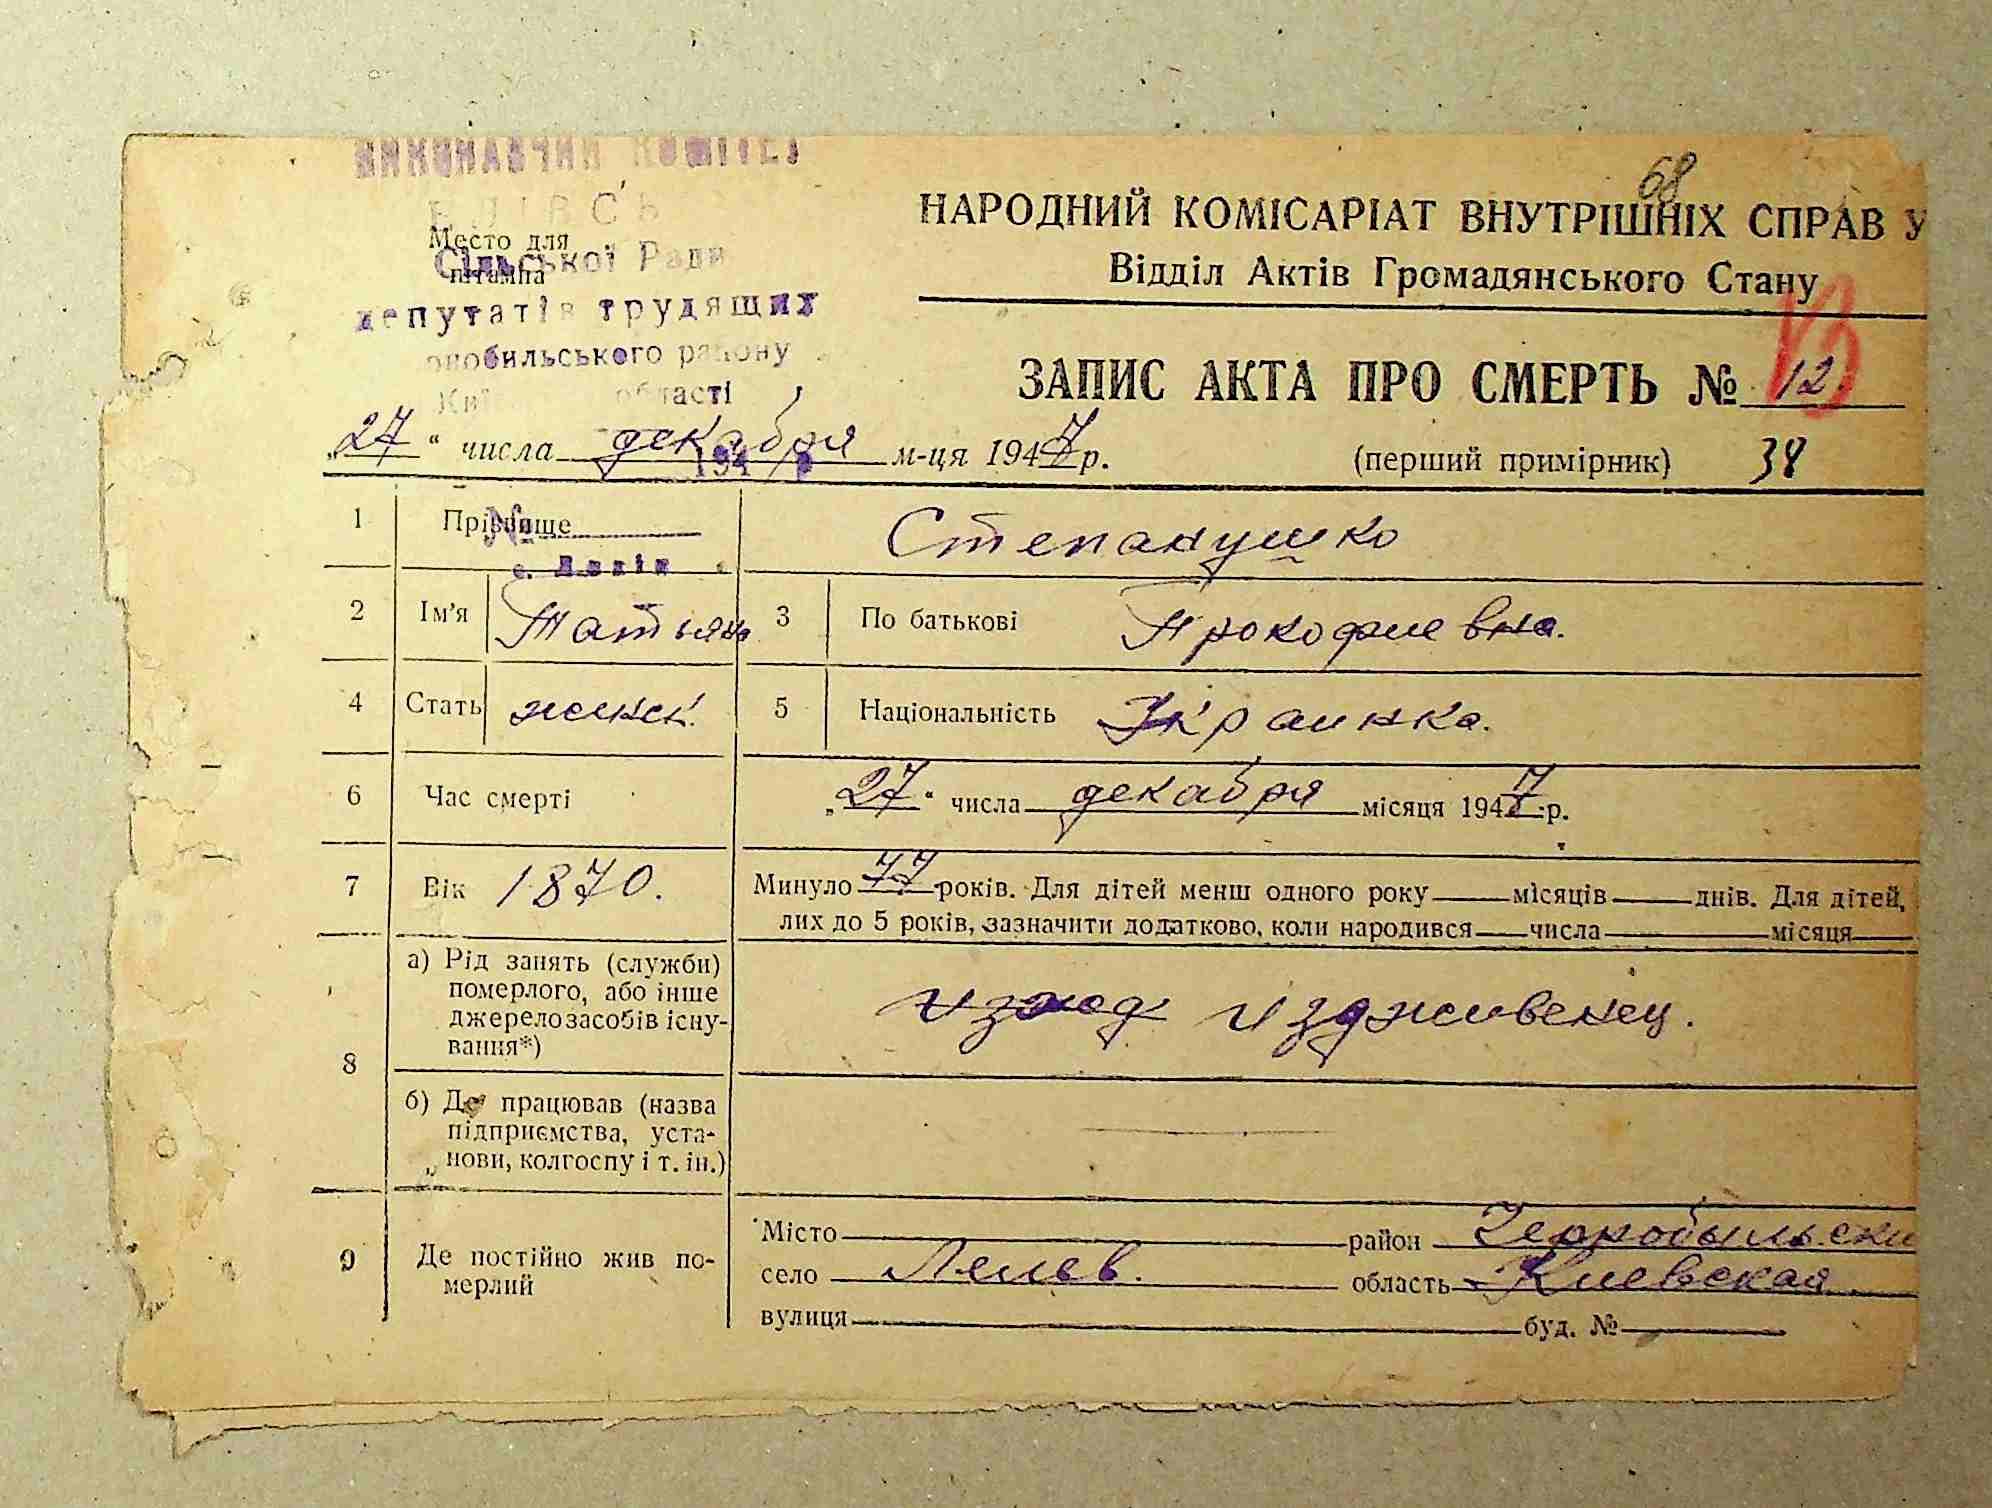 ВИКОНАВЧИЙ КОМІТЕТ
68
НАРОДНИЙ КОМІСАРІАТ ВНУТРІШНІХ СПРАВ У
Место для
штампа
Сільської Ради
Відділ Актів Громадянського Стану
депутатів трудящих
нобильського району
області
ЗАПИС АКТА ПРО СМЕРТЬ № 12
„27“ числа декабря м-ця 1947 р.
194
(перший примірник) 38
1 Прізвище Степанушко
№
с.
2 Ім'я Татьяна 3 По батькові Прокофиевна.
4 Стать женск. 5 Національність Украинка.
6 Час смерті „27“ числа декабря місяця 1947 р.
7 Вік 1870. Минуло 77 років. Для дітей менш одного року місяців днів. Для дітей,
лих до 5 років, зазначити додатково, коли народився числа місяця
8 а) Рід занять (служби)
померлого, або інше
джерело засобів існу-
вання*)
изджівенец.
б) Де працював (назва
підприємства, уста-
нови, колгоспу і т. ін.)
9 Де постійно жив по-
мерлий
Місто район Чернобыльски
село Лелев. область Киевская
вулиця буд. №